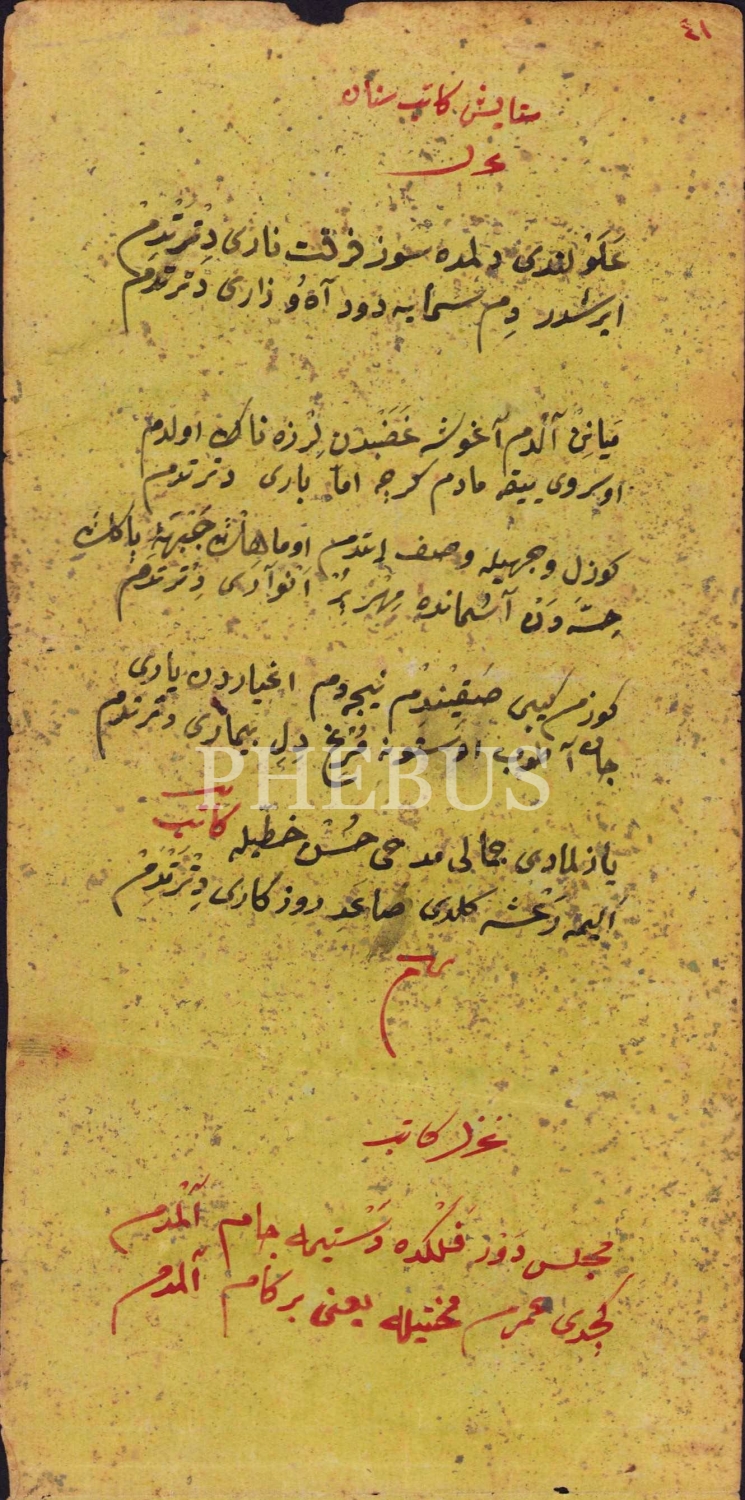 ٤١
ستایش کاتب ستان
غزل
علولندی دلمده سوز فرقت ناری دِتْرتدم
ایرشدر دم سمایه دود آه و زاری دترتدم
میانن آلدم آغوشه غضبدن لرزه ناك اولدم
اوسروی ییقمادم کرچه اما باری دترتدم
کوزل وجهیله وصف ایتدم اوماهك جبهۀ پاکن
آسمانده مهر پر انواری دترتدم
کوزم کیبی صقیندم نیجه دم اغیاردن یاری
جان آلوب اوستونه مرغ دل بیماری دترتدم
یازلمادی جمالی مدحی حسن خطیله کاتب
الیمه رعشه کلدی صاعد روزکاری دترتدم
تم
غزل کاتب
مجلس دور فلکده دستیمه جام آلمدم
کچدی عمرم محنتیله یعنی بر کام آلمدم
PHEBUS